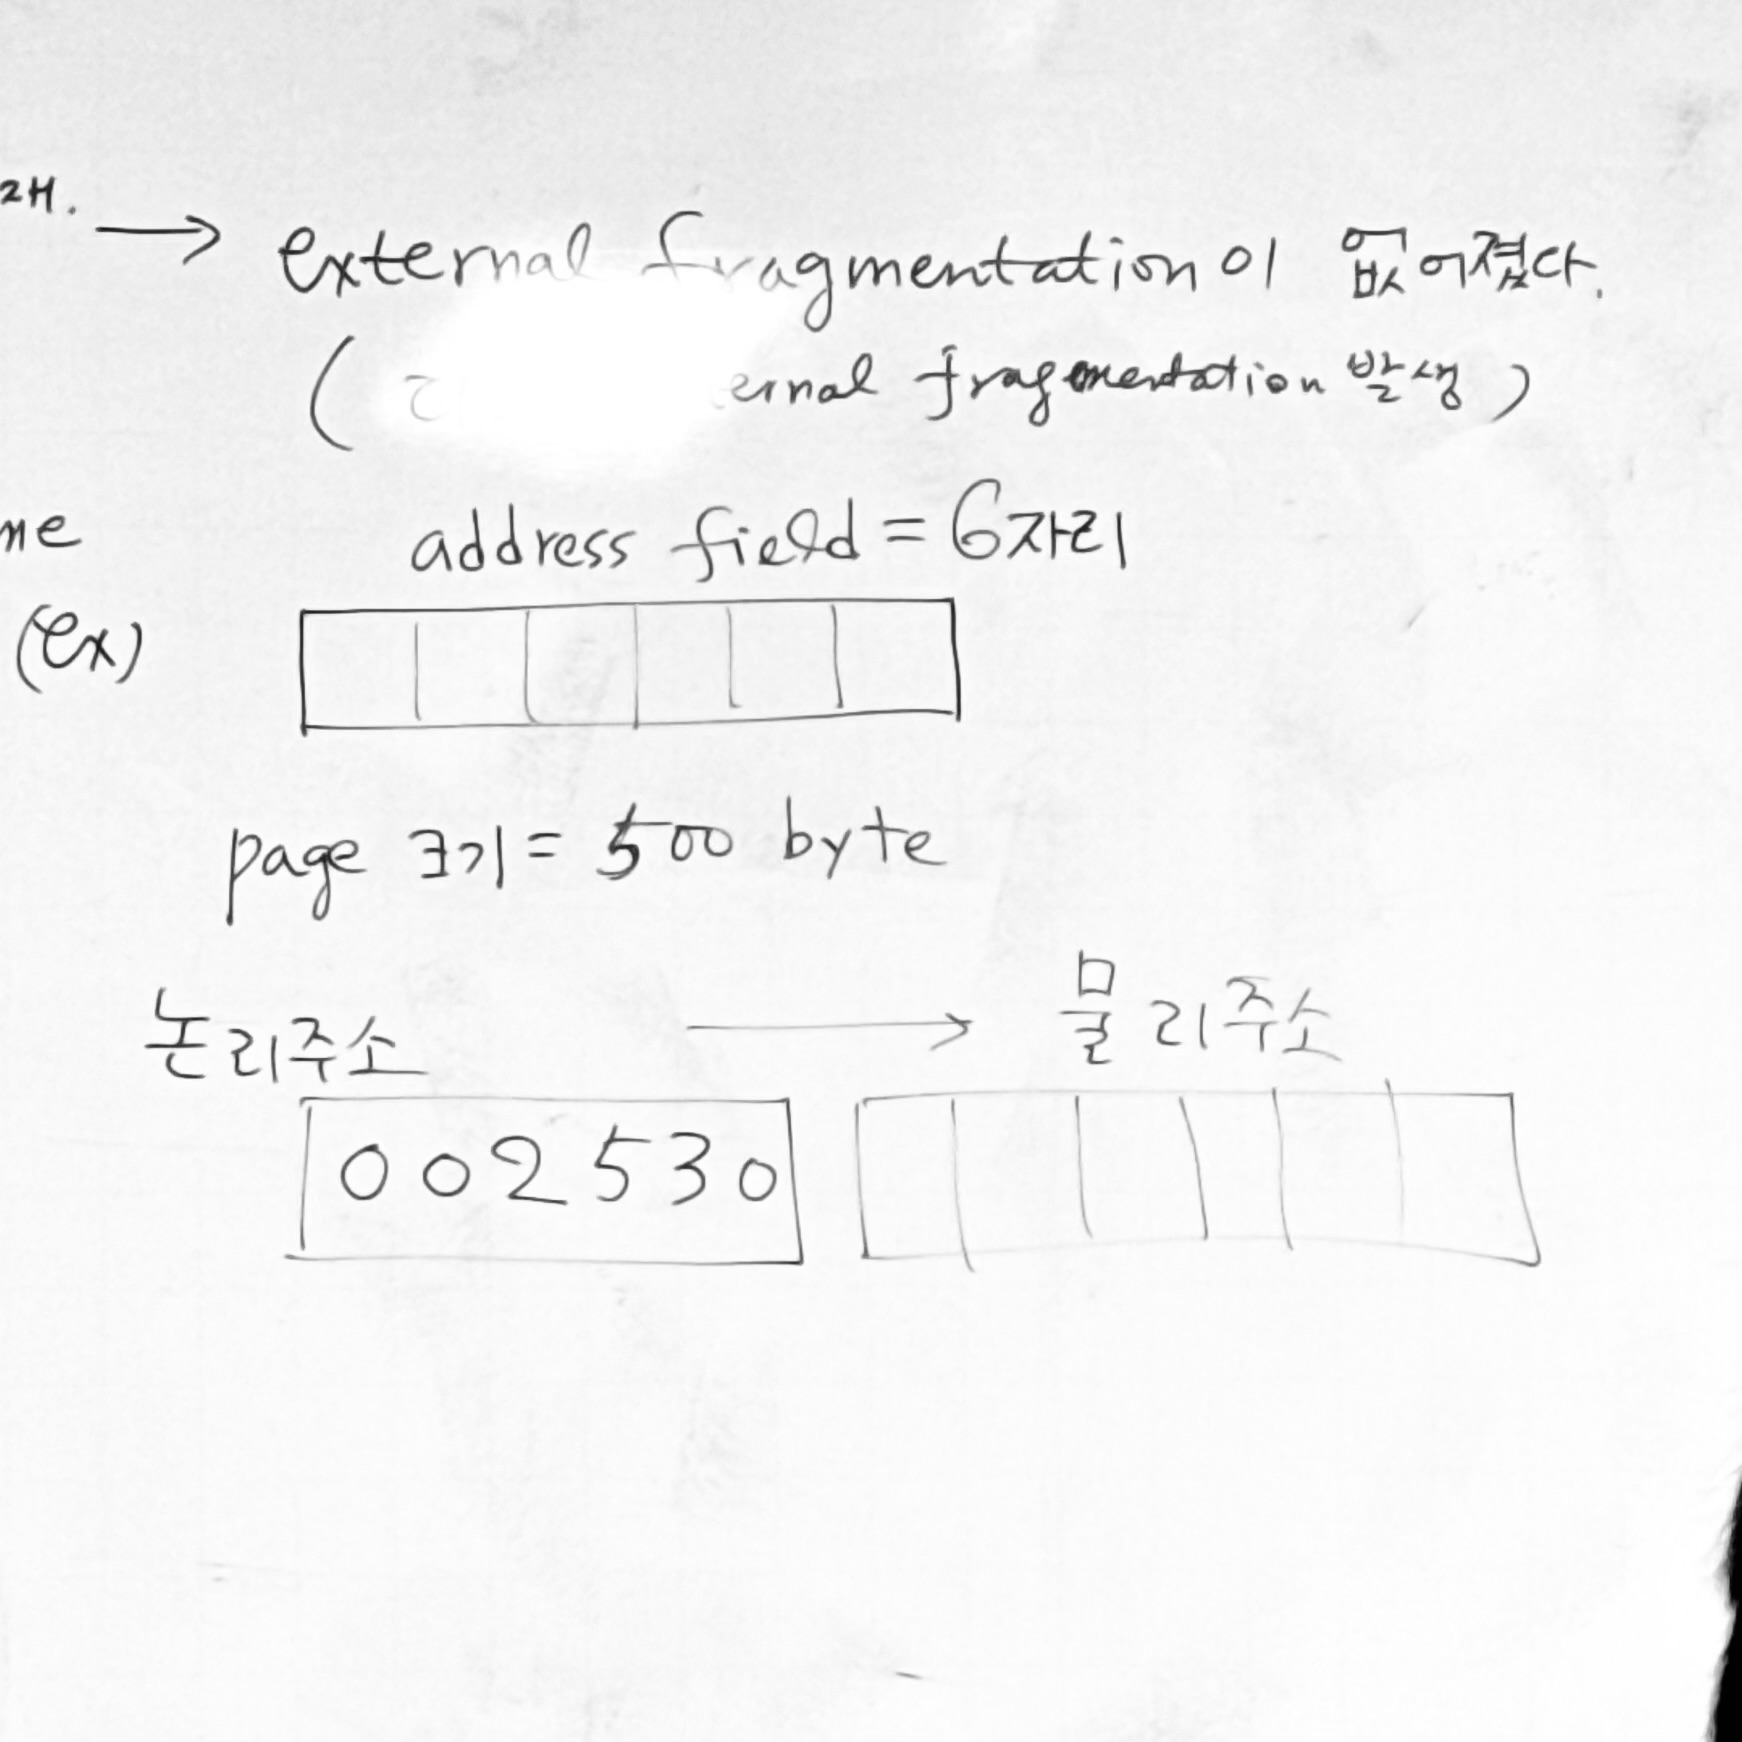 → external fragmentation이 없어졌다.
fragmentation 발생 )
address field = 6자리
(ex)
page 크기 = 500 byte
논리주소 → 물리주소
002530